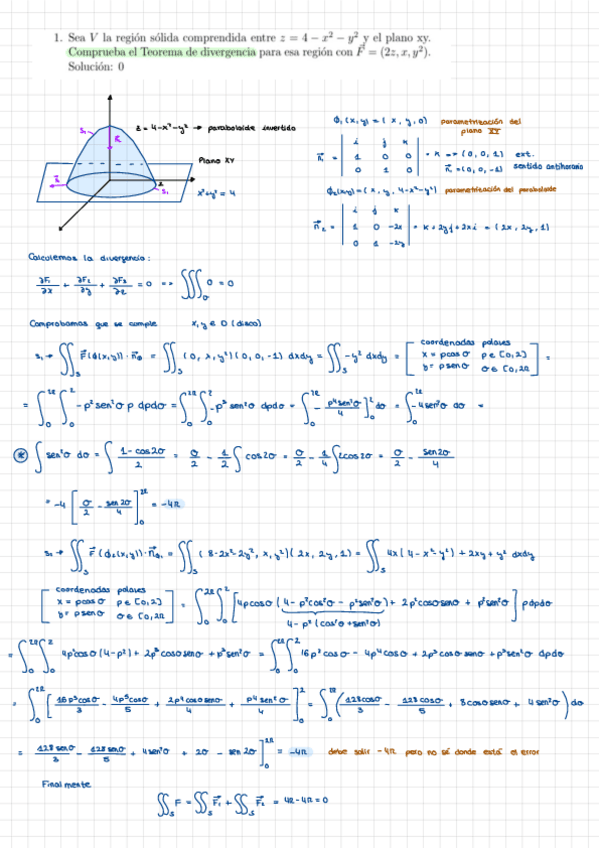 1. Sea V la región sólida comprendida entre z = 4 − x² − y² y el plano xy.
Comprueba el Teorema de divergencia para esa región con F⃗ = (2z, x, y²).
Solución: 0
z = 4-x²-y² → paraboloide invertido
Plano XY
x²+y² = 4
ϕ₁(x,y) = (x, y, 0) parametrización del plano XY
n⃗₁ = | i j k | 1 0 0 | 0 1 0 | = k => (0, 0, 1) ext.
n⃗ = (0, 0, -1) sentido antihorario
ϕ₂(x,y) = (x, y, 4-x²-y²) parametrización del paraboloide
n⃗₂ = | i j k | 1 0 -2x | 0 1 -2y | = k + 2yj + 2xi = (2x, 2y, 1)
Calculemos la divergencia:
∂F₁/∂x + ∂F₂/∂y + ∂F₃/∂z = 0 => ∭ 0 = 0
Comprobamos que se cumple x, y ∈ D (disco)
s₁ → ∬ F⃗(ϕ(x,y)) · n⃗ = ∬ (0, x, y²)(0, 0, -1) dxdy = ∬ -y² dxdy = [coordenadas polares x = ρcosσ ρ ∈ [0,2] y = ρsenσ σ ∈ [0,2π] =
= ∫₀^2π ∫₀² -ρ²sen²σ ρ dρdσ = ∫₀^2π ∫₀² -ρ³ sen²σ dρdσ = ∫₀^2π - ρ⁴sen²σ/4 ]₀² dσ = ∫₀^2π -4sen²σ dσ =
* ∫ sen²σ dσ = ∫ (1-cos2σ)/2 = σ/2 - 1/2 ∫ cos2σ = σ/2 - 1/4 ∫ 2cos2σ = σ/2 - sen2σ/4
= -4 [ σ/2 - sen2σ/4 ]₀^2π = -4π
s₂ → ∬ F⃗(ϕ₂(x,y)) · n⃗₂ = ∬ (8-2x²-2y², x, y²)(2x, 2y, 1) = ∬ 4x(4-x²-y²) + 2xy + y² dxdy
[coordenadas polares x = ρcosσ ρ ∈ [0,2] y = ρsenσ σ ∈ [0,2π] = ∫₀^2π ∫₀² [4ρcosσ (4-ρ²cos²σ - ρ²sen²σ) + 2ρ²cosσsenσ + ρ²sen²σ] ρdρdσ
4-ρ²(cos²σ+sen²σ)
= ∫₀^2π ∫₀² 4ρ²cosσ(4-ρ²) + 2ρ³cosσsenσ + ρ³sen²σ = ∫₀^2π ∫₀² 16ρ²cosσ - 4ρ⁴cosσ + 2ρ³cosσsenσ + ρ³sen²σ dρdσ
= ∫₀^2π [ 16ρ³cosσ/3 - 4ρ⁵cosσ/5 + 2ρ⁴cosσsenσ/4 + ρ⁴sen²σ/4 ]₀² = ∫₀^2π ( 128cosσ/3 - 128cosσ/5 + 8cosσsenσ + 4sen²σ ) dσ
= 128senσ/3 - 128senσ/5 + 4sen²σ + 2σ - sen2σ ]₀^2π = -4π debe salir -4π pero no sé donde está el error
Finalmente
∬ F = ∬ F⃗₁ + ∬ F⃗₂ = 4π - 4π = 0